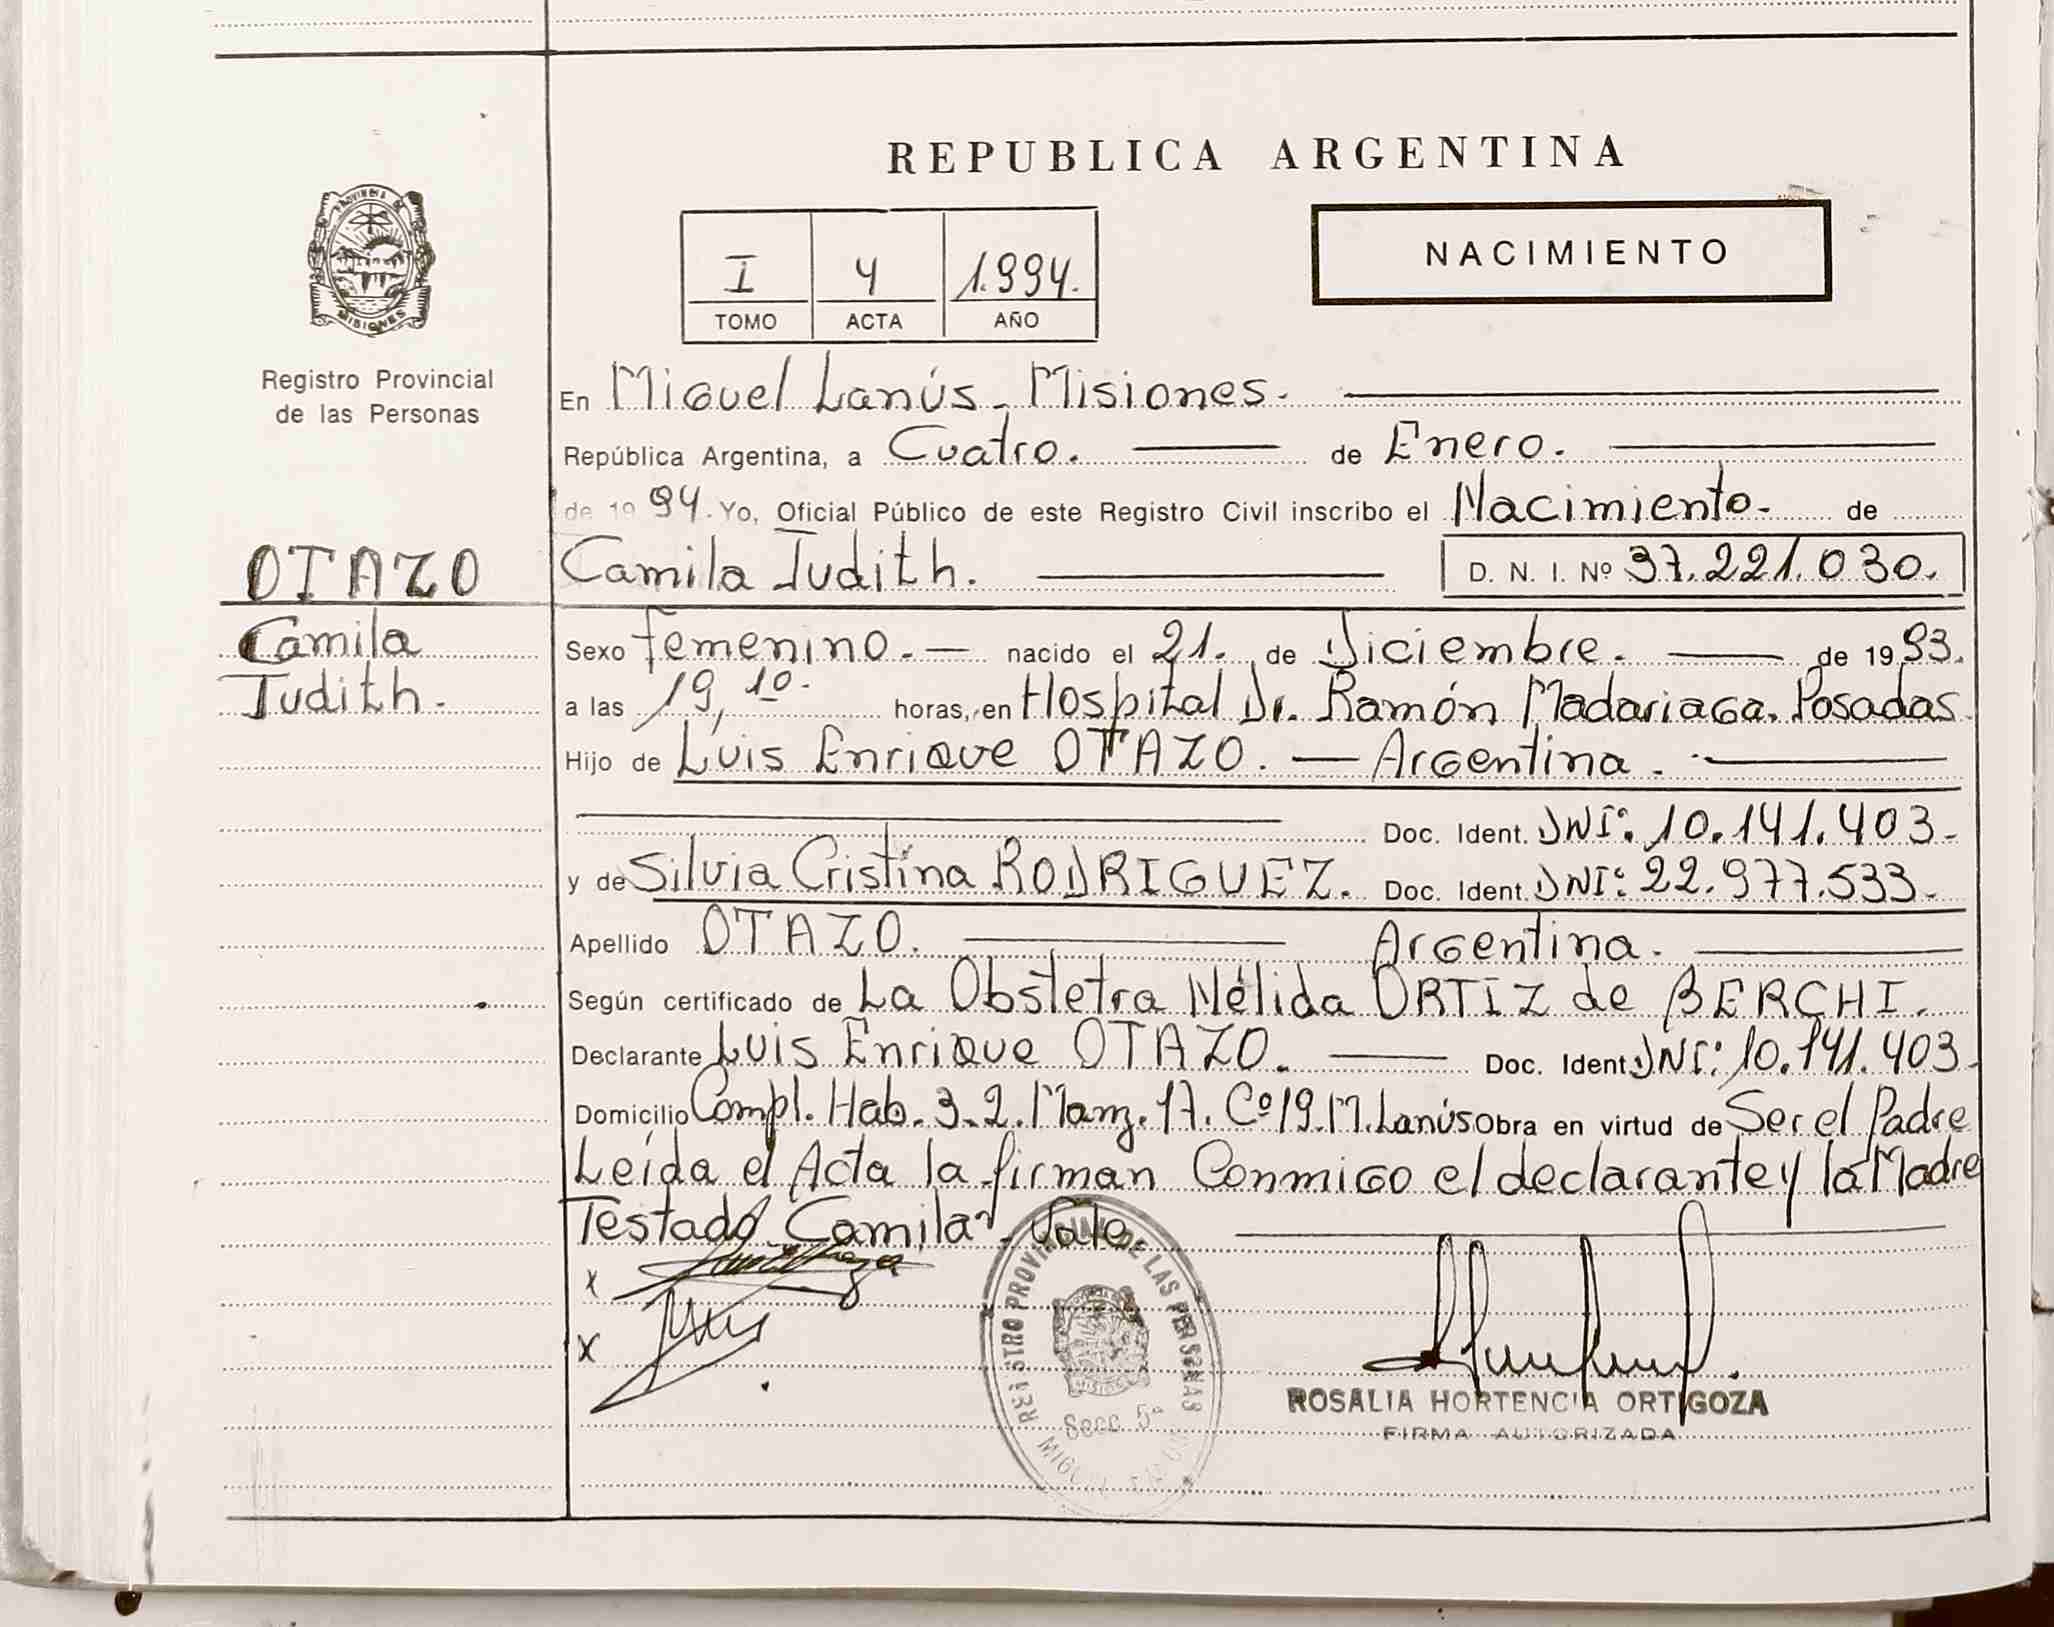 REPUBLICA ARGENTINA
PROVINCIA DE
MISIONES
Registro Provincial
de las Personas
NACIMIENTO
I 4 1.994.
TOMO ACTA AÑO
En Miguel Lanús - Misiones.
República Argentina, a Cuatro. de Enero.
de 1994. Yo, Oficial Público de este Registro Civil inscribo el Nacimiento. de
OTAZO
Camila Judith. D. N. I. Nº 37.221.030.
Camila
Judith.
Sexo femenino. nacido el 21. de Diciembre. de 1993.
a las 19,10. horas, en Hospital Dr. Ramón Madariaga. Posadas
Hijo de Luis Enrique OTAZO. — Argentina.
Doc. Ident. DNI: 10.141.403-
y de Silvia Cristina RODRIGUEZ. Doc. Ident. DNI: 22.977.533-
Apellido OTAZO. Argentina.
Según certificado de La Obstetra Nélida ORTIZ de BERCHI.
Declarante Luis Enrique OTAZO. Doc. Ident. DNI: 10.141.403-
Domicilio Compl. Hab. 3.2. Manz. 17. Cº 19. M. Lanús Obra en virtud de Ser el Padre
Leída el Acta la firman Conmigo el declarante y la Madre
Testado Camila Vale
REGISTRO PROVINCIAL DE LAS PERSONAS
Secc. 5ª
ROSALIA HORTENCIA ORTIGOZA
FIRMA AUTORIZADA